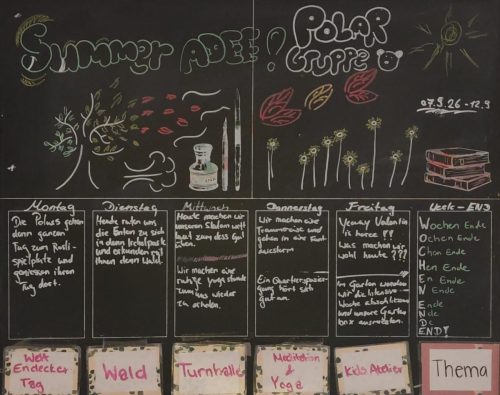 Summer ADEE!
POLAR
Gruppe
07.9.26 - 12.9
Montag
Dienstag
Mittwoch
Donnerstag
Freitag
Week-END
Die Polars gehen
den ganzen
Tag zum
spielplatz und
geniessen ihren
Tag dort.
Heute rufen uns
die Enten zu sich
in den
und erkunden mit
ihnen den Wald.
Heute machen wir
unseren
Wir machen eine
ruhige Yoga stunde
um uns wieder
zu erholen.
Wir machen eine
Traumreise und
gehen in eine Fant
Ein Quartierspazier
gang hört sich
gut an.
Valentin
is here ??
Was machen wir
wohl heute ???
Im Garten werden
wir die Intensive
Woche abschliessen
und unsere Garten
box ausmisten.
Wochen Ende
Ochen Ende
Chen Ende
Hen Ende
En Ende
N Ende
Ende
Nde
De
END!
Welt
Endecker
Tag
Wald
Turnhalle
Meditation
&
Yoga
Kids Atelier
Thema